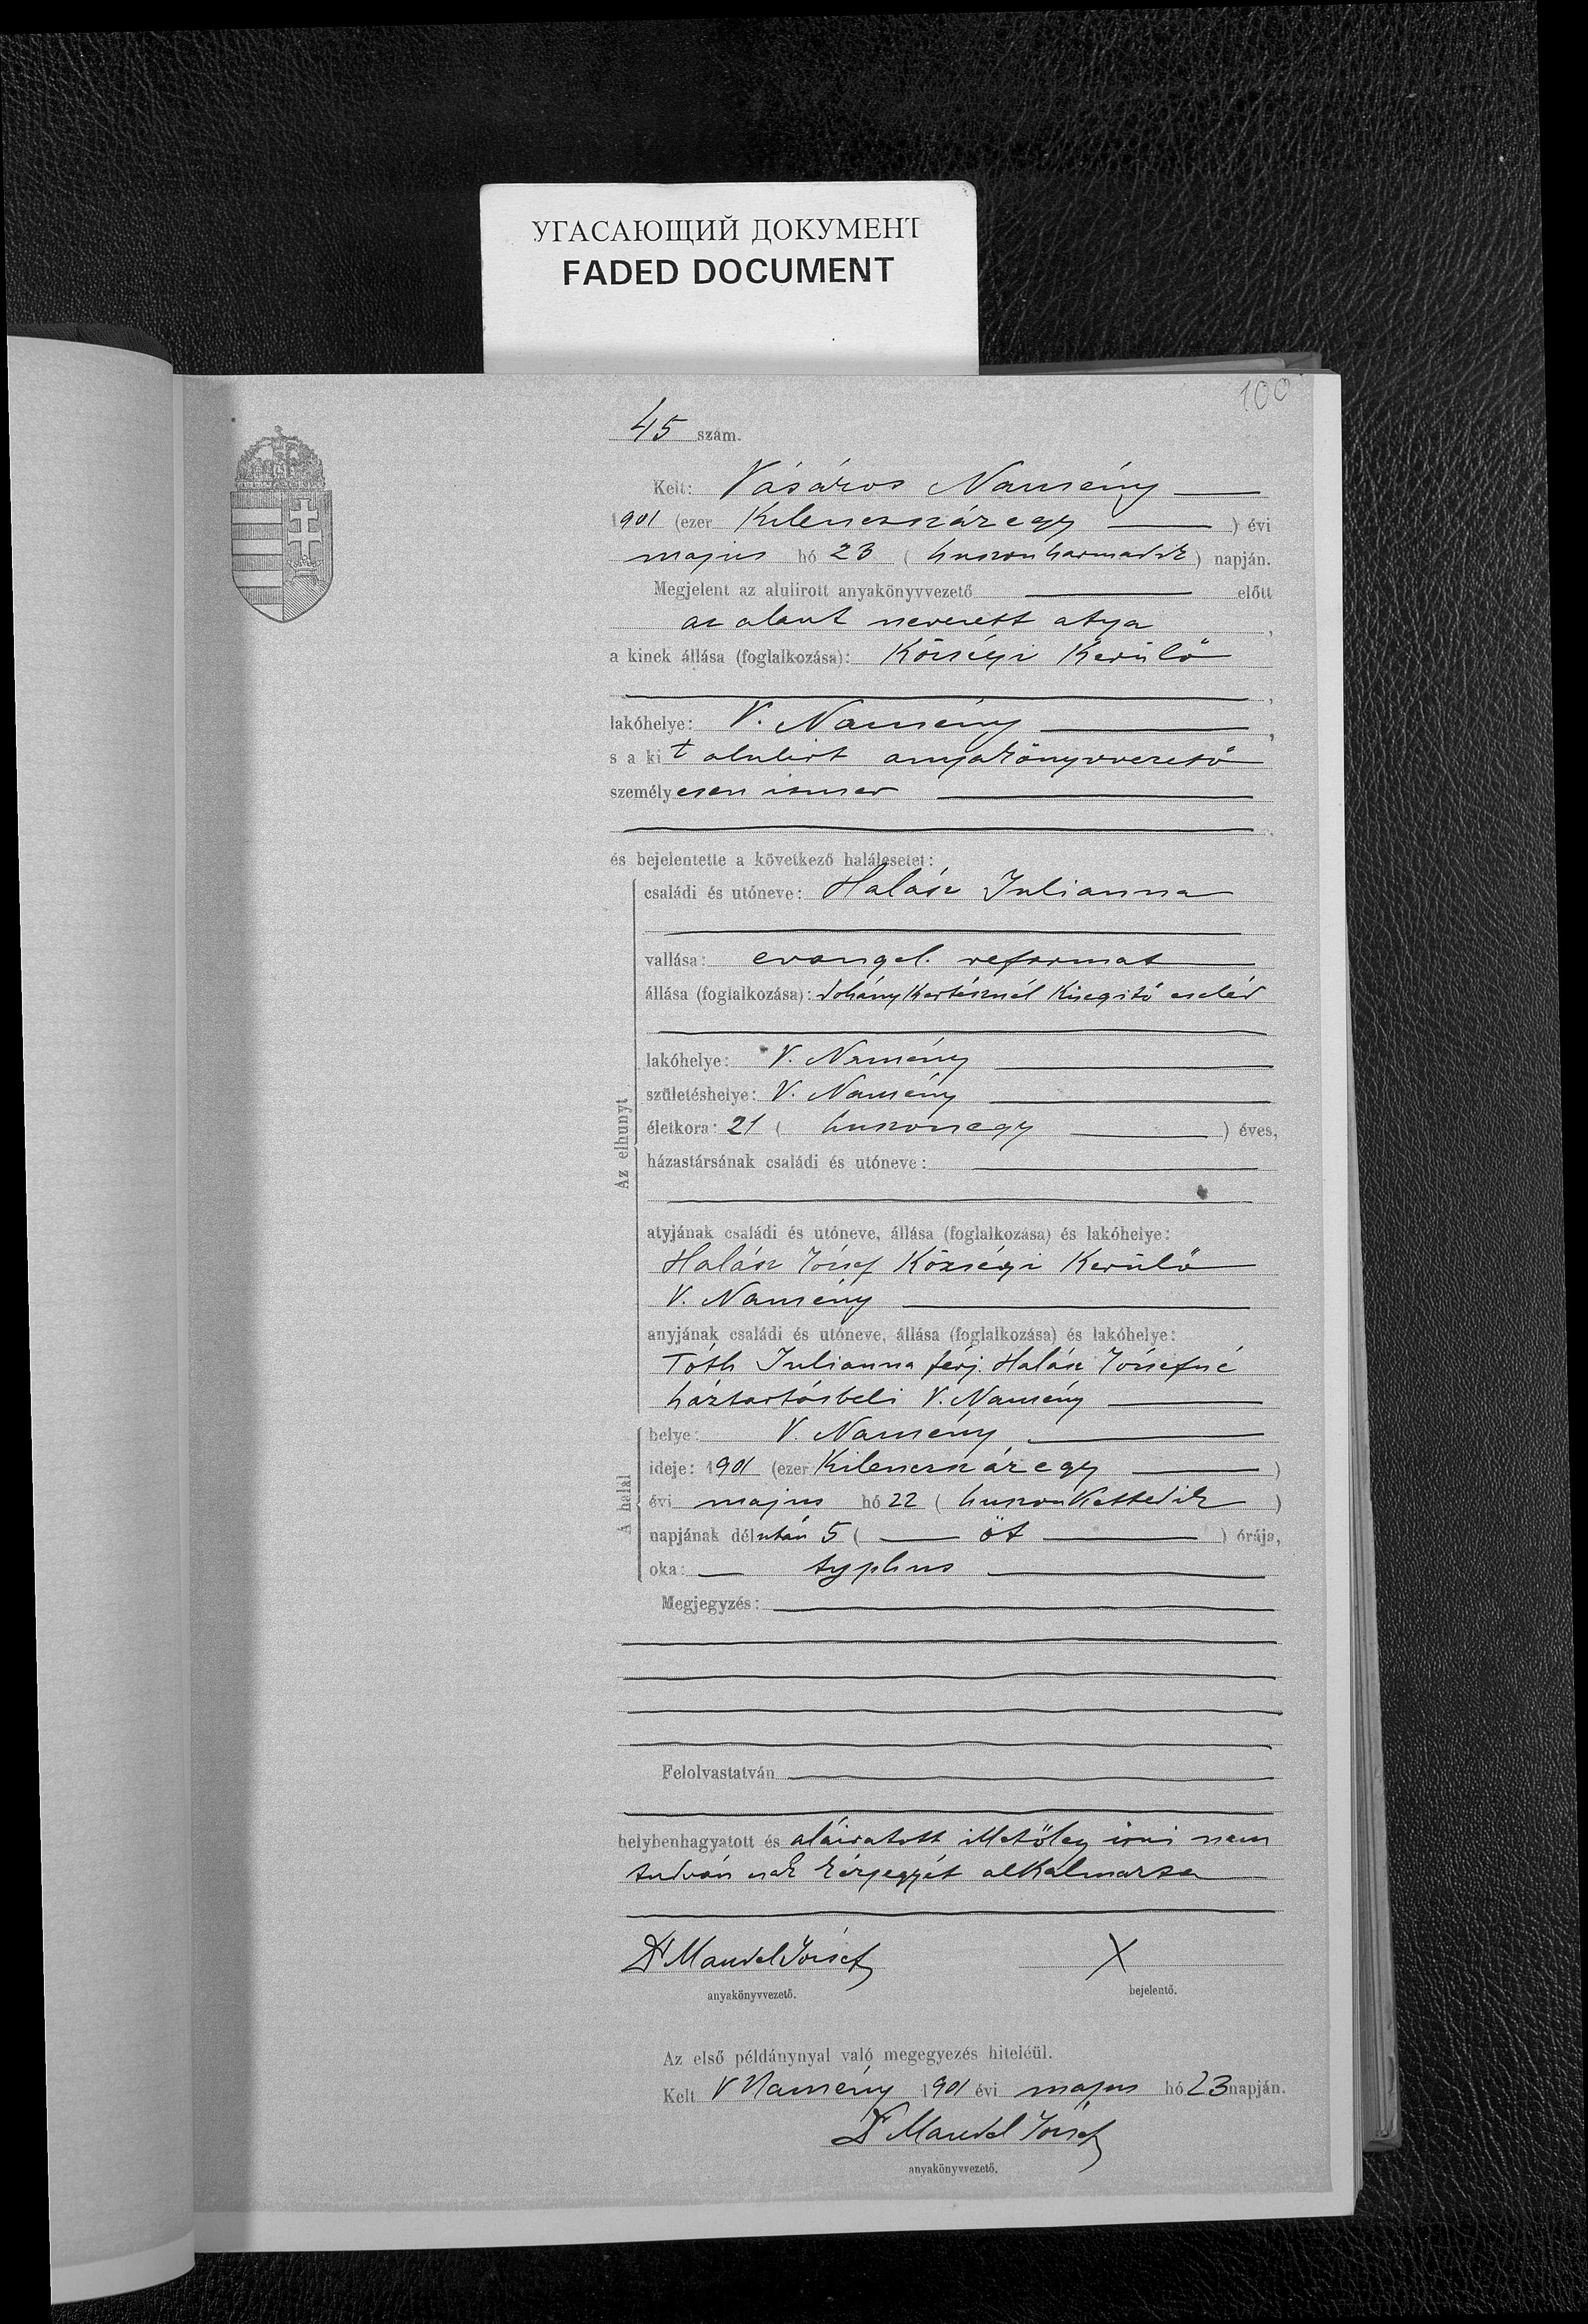 УГАСАЮЩИЙ ДОКУМЕНТ
FADED DOCUMENT
100
45 szám.
Kelt: Vásáros Namény
1901 (ezer kilenczszázegy ) évi
majus hó 23 ( huszonharmadik ) napján.
Megjelent az alulirott anyakönyvvezető előtt
az alant nevezett atya ,
a kinek állása (foglalkozása): Községi Kerülő
,
lakóhelye: V. Namény ,
s a kit alulirt anyakönyvvezető
személyesen ismer
.
és bejelentette a következő halálesetet:
Az elhunyt
családi és utóneve: Halász Julianna
vallása: evangel. reformat
állása (foglalkozása): dohánykertésznél kisegítő cseléd
lakóhelye: V. Namény
születéshelye: V. Namény
életkora: 21 ( huszonegy ) éves,
házastársának családi és utóneve:
atyjának családi és utóneve, állása (foglalkozása) és lakóhelye:
Halász József Községi Kerülő
V. Namény
anyjának családi és utóneve, állása (foglalkozása) és lakóhelye:
Tóth Julianna férj. Halász Józsefné
háztartásbeli V. Namény
A halál
helye: V. Namény
ideje: 1901 (ezer kilenczszázegy )
évi majus hó 22 ( huszonkettedik )
napjának délután 5 ( öt ) órája,
oka: typhus
Megjegyzés:
Felolvastatván
helybenhagyatott és aláiratott illetőleg irni nem
tudván csak kézjegyét alkalmazta
Dr Mandel József X
anyakönyvvezető. bejelentő.
Az első példánynyal való megegyezés hiteléül.
Kelt V Namény 1901 évi majus hó 23 napján.
Dr Mandel József
anyakönyvvezető.